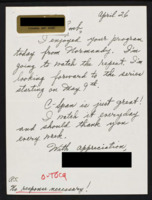 April 26
I enjoyed your program
today from Normandy. I'm
going to watch the repeat. I'm
looking forward to the series
starting on May 9th.
C-Span is just great!
I watch it everyday
and should thank you
every week.
With appreciation,
P.S.
No response necessary!